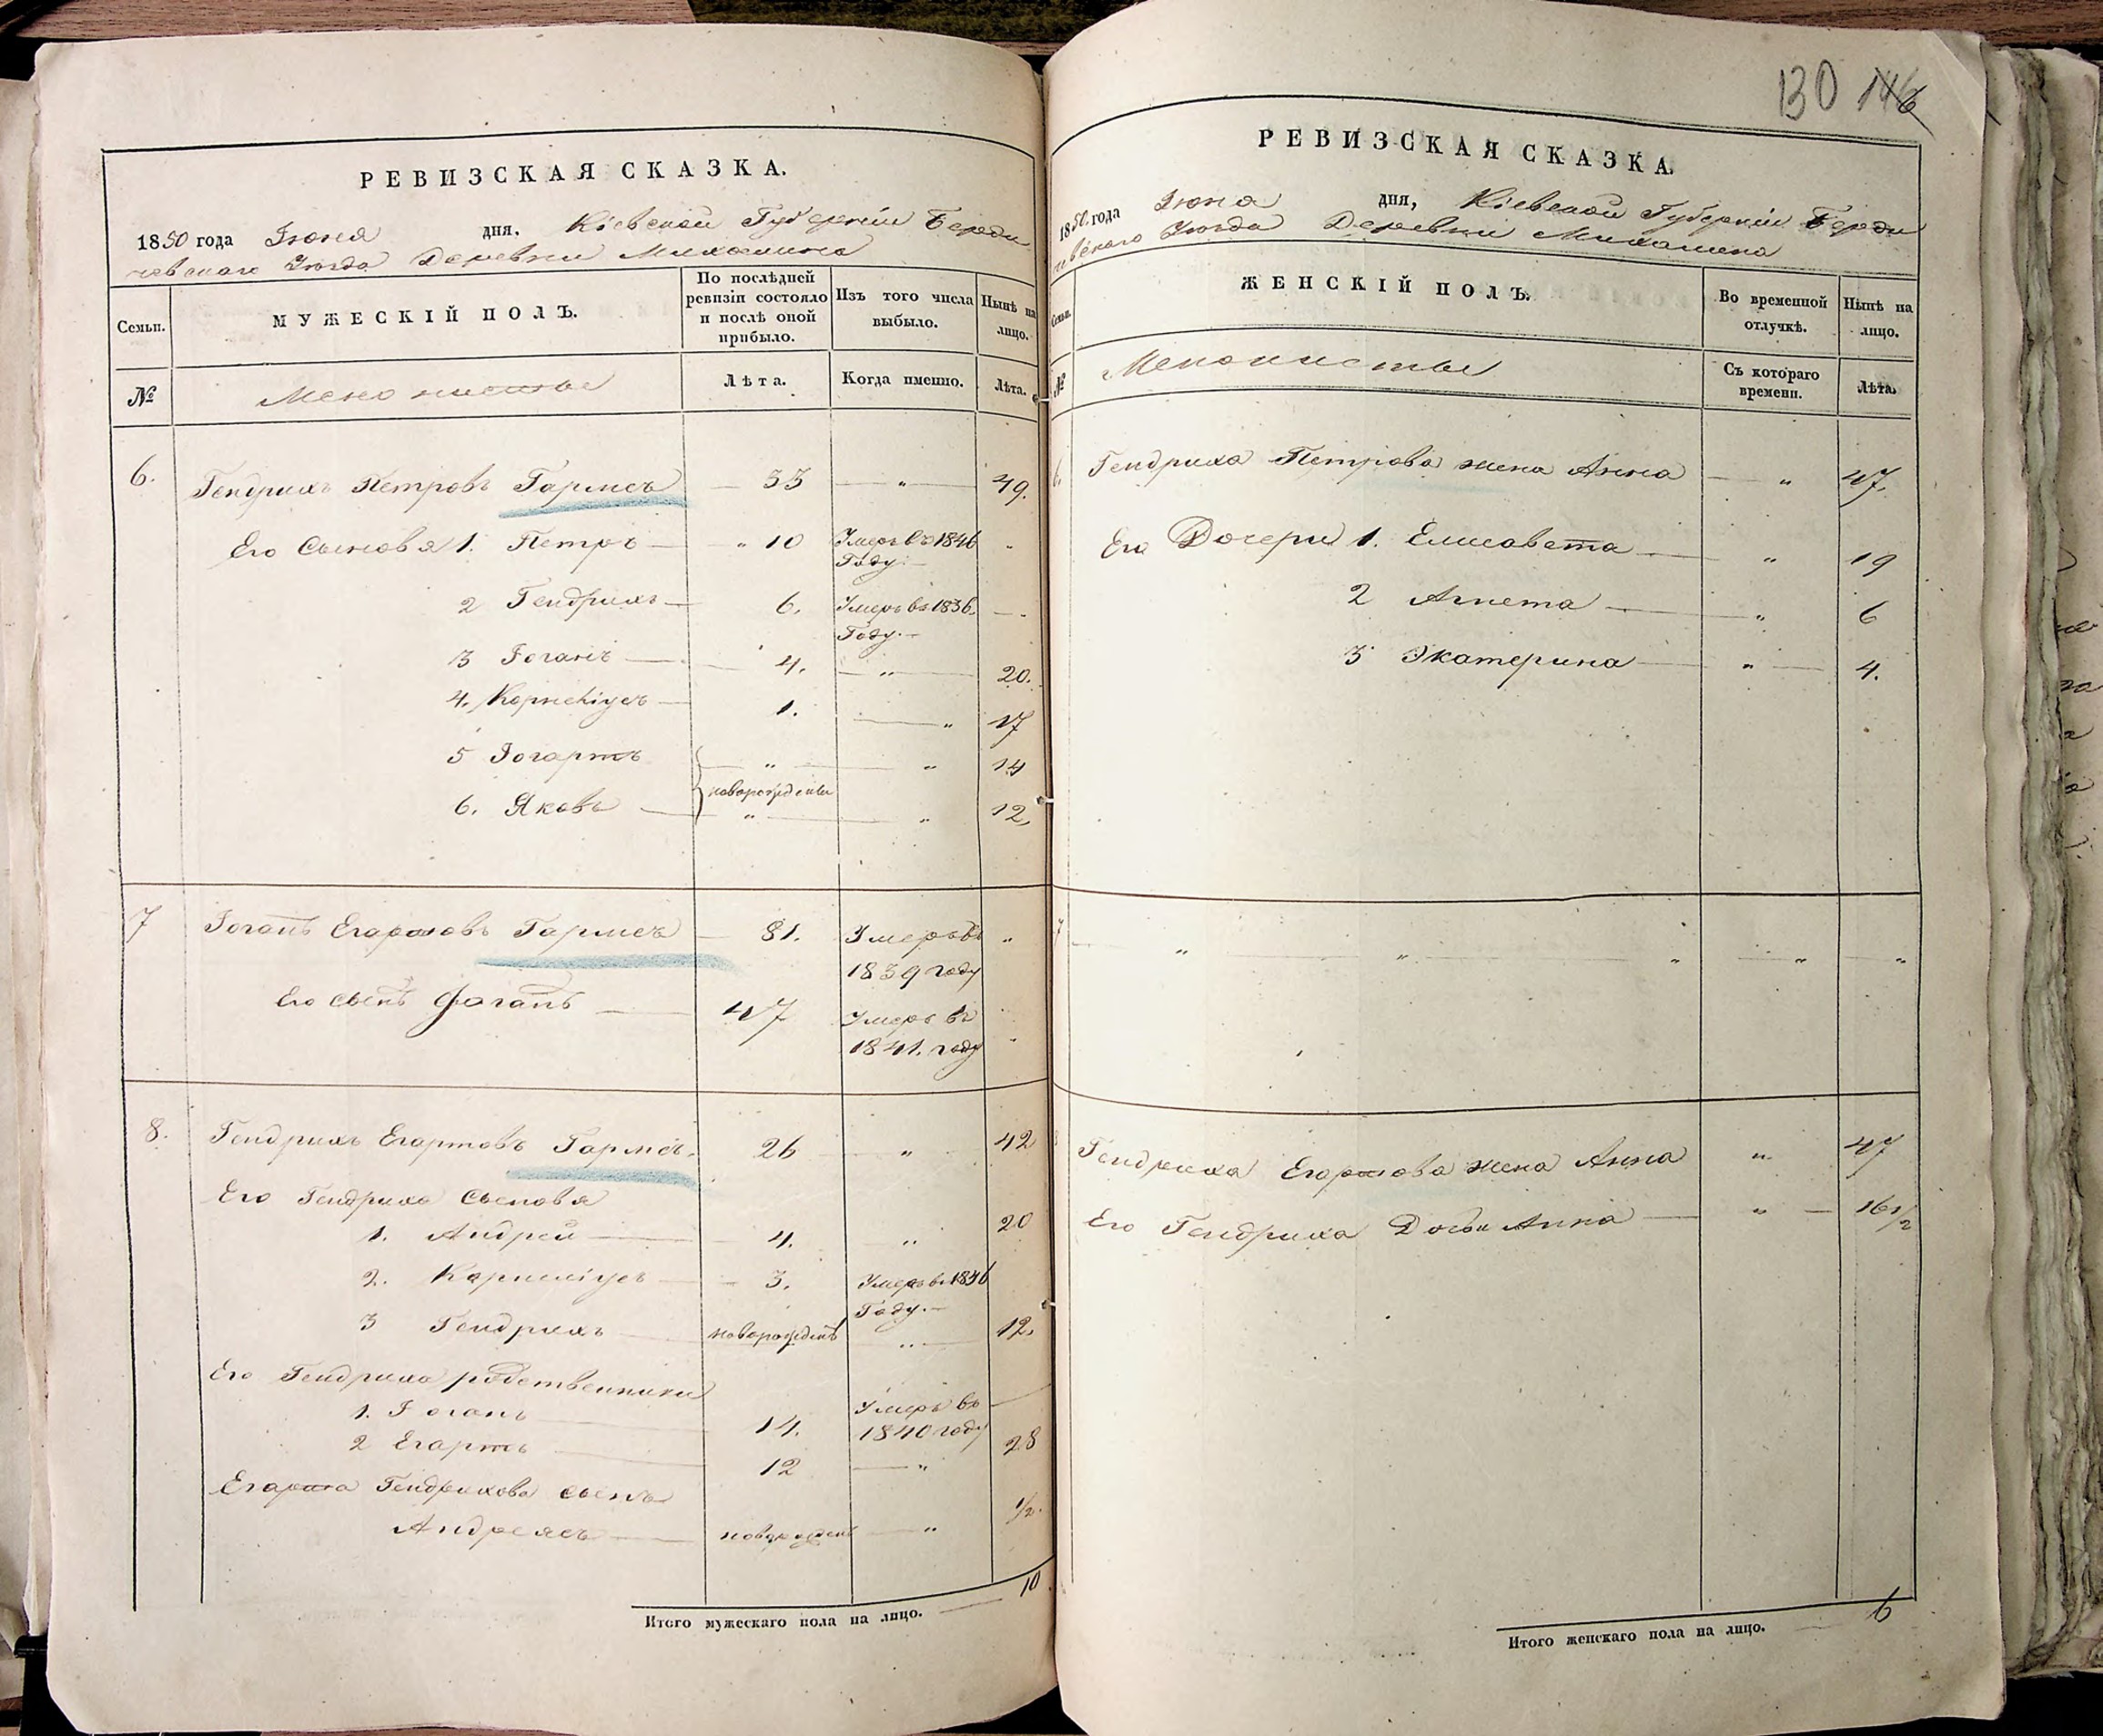 РЕВИЗСКАЯ СКАЗКА.
1850 года Іюня дня, Кіевской Губерніи Берди
чевскаго Уѣзда Деревни Михалина
Семьи.
МУЖЕСКІЙ ПОЛЪ.
По послѣдней ревизіи состояло и послѣ оной прибыло.
Изъ того числа выбыло.
Нынѣ на лицо.
№
Менонисты
Лѣта.
Когда именно.
Лѣта.
6. Гендрихъ Петровъ Гармсъ 33 " 49.
Его Сыновья 1. Петръ " 10 Умеръ въ 1846 Году. "
2 Гендрихъ 6. Умеръ въ 1836. Году.
3 Іоганъ 4. " 20.
4. Корнеліусъ 1. " 17
5 Іогартъ " " 14
новорождены
6. Яковъ " " 12.
7 Іоганъ Егартовъ Гармсъ 81. Умеръ въ 1839 году "
Его сынъ Іоганъ 47 Умеръ въ 1841. году "
8. Гендрихъ Егартовъ Гармсъ. 26 " 42
Его Гендриха Сыновья
1. Андрей 4. " 20
2. Корнеліусъ 3. Умеръ в. 1846 Году.
3 Гендрихъ новорожденъ " 12.
Его Гендриха родственники
1. Іоганъ 14. Умеръ въ 1840 году
2 Егартъ 12 " 28
Егарта Гендрихова сынъ
Андреясъ новорожденъ " 1/2.
Итого мужескаго пола на лицо. 10
130 146
РЕВИЗСКАЯ СКАЗКА.
1850 года Іюня дня, Кіевской Губерніи Берди
чевскаго Уѣзда Деревни Михалина
Семьи.
ЖЕНСКІЙ ПОЛЪ.
Во временной отлучкѣ.
Нынѣ на лицо.
№
Менонисты
Съ котораго времени.
Лѣта.
6. Гендриха Петрова жена Анна " 47.
Его Дочери 1. Елисавета " 19
2 Агнета " 6
3 Екатерина " 4.
7 " " " " "
8 Гендриха Егартова жена Анна " 47
Его Гендриха Дочь Анна " 16 1/2
Итого женскаго пола на лицо. 6